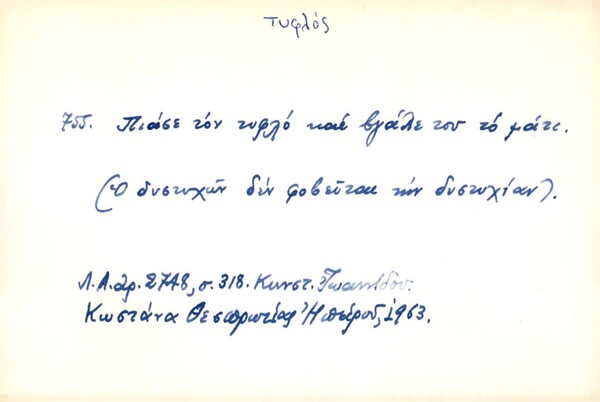 τυφλός
755. Πιάσε τόν τυφλό καί βγάλε του τό μάτι.
(Ὁ δυστυχῶν δέν φοβεῖται τήν δυστυχίαν).
Λ.Α.ἀρ. 2748, σ. 318. Κωνστ. Ἰωαννίδου.
Κωστάνα Θεσπρωτίας Ἠπείρου, 1963.